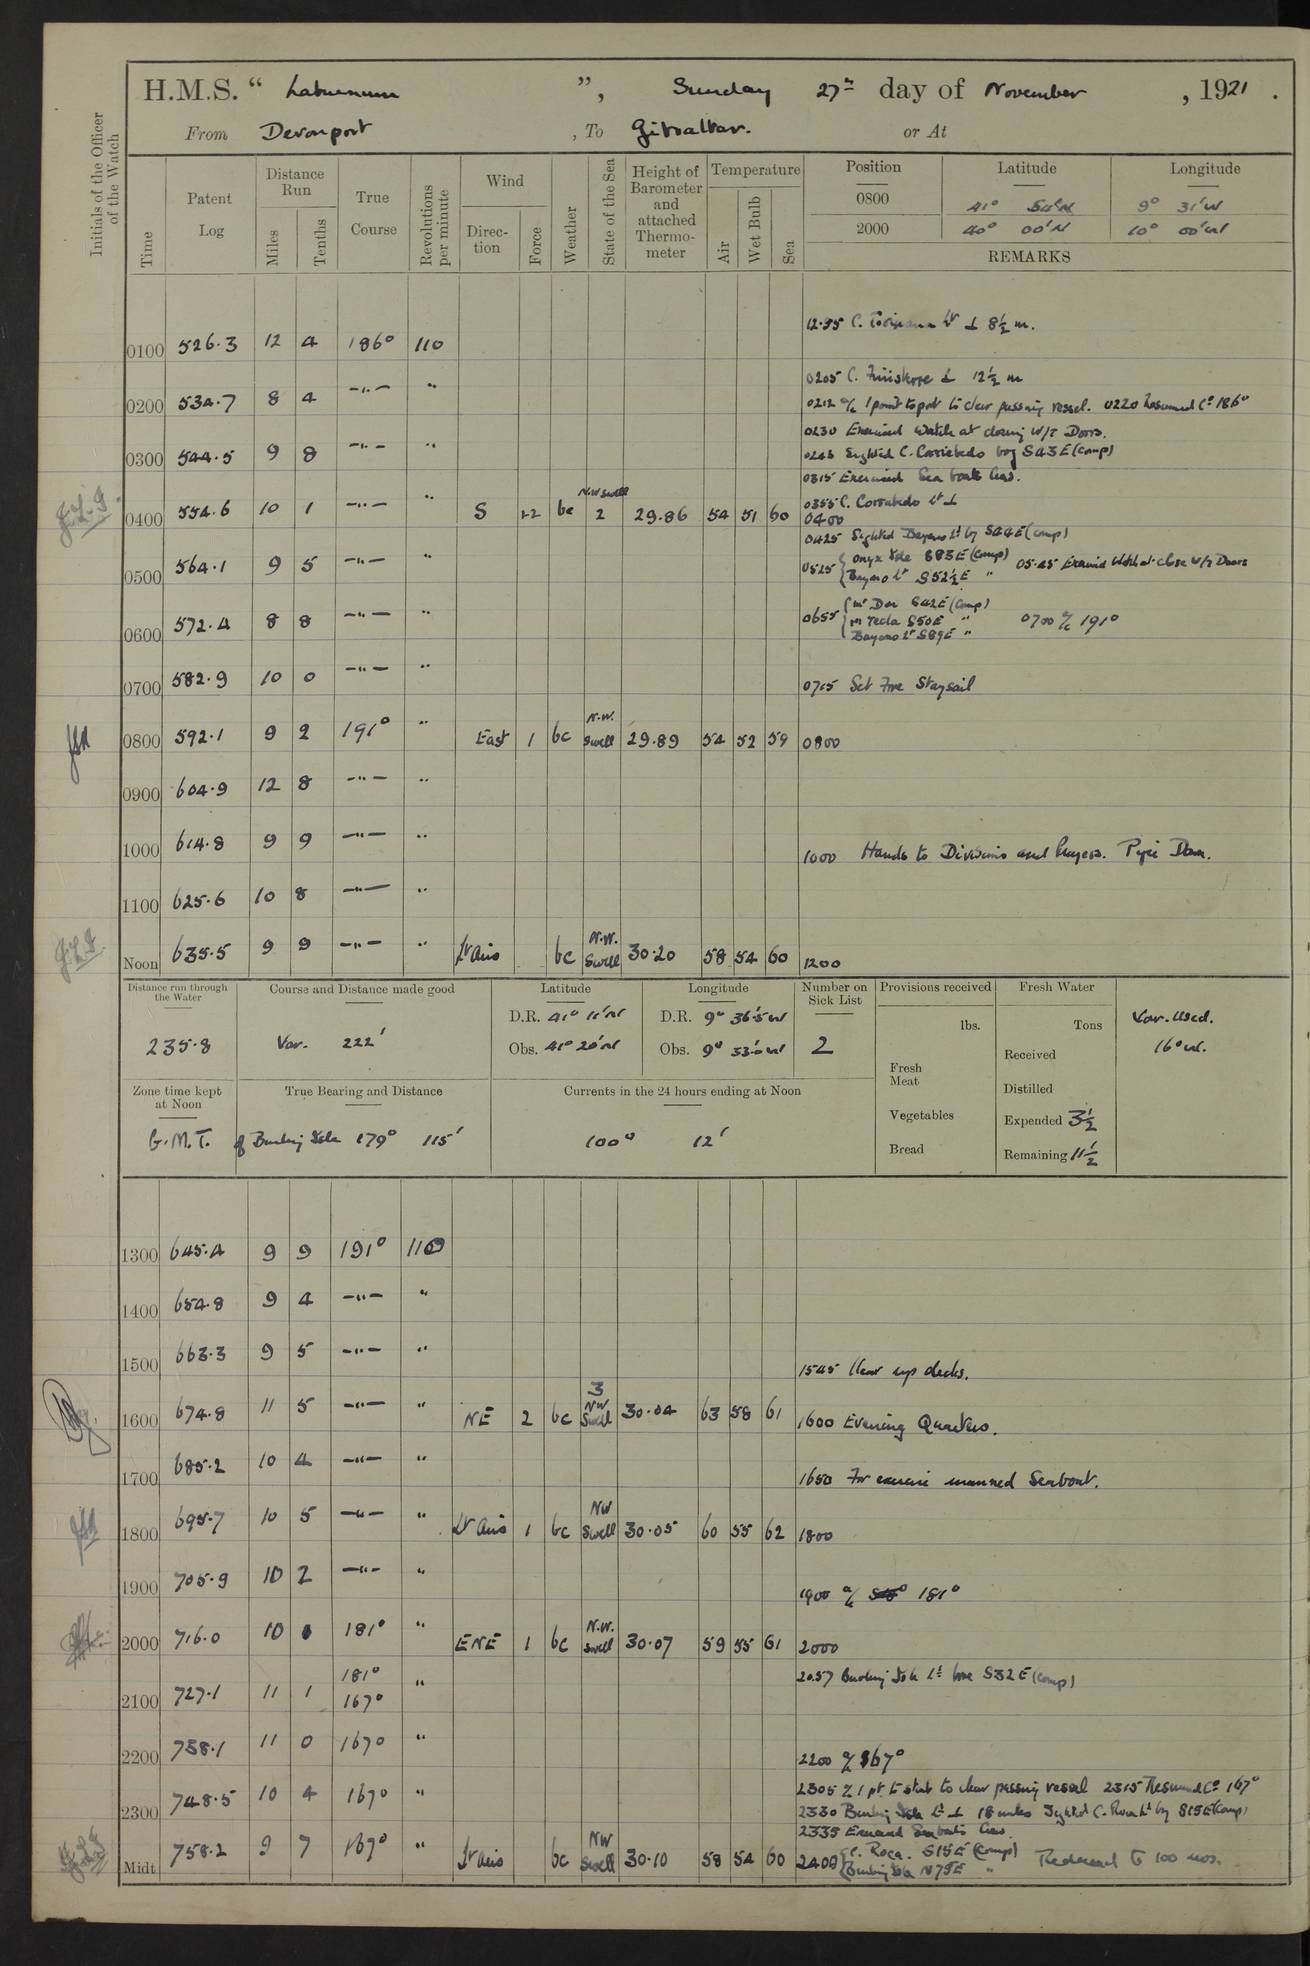 H.M.S. “ Laburnum ”, Sunday 27th day of November , 1921 .
From Devonport , To Gibraltar. or At
Initials of the Officer of the Watch
Time
Patent Log
Distance Run
Miles
Tenths
True Course
Revolutions per minute
Wind
Direction
Force
Weather
State of the Sea
Height of Barometer and attached Thermometer
Temperature
Air
Wet Bulb
Sea
Position Latitude Longitude
0800 41° 54'N 9° 31'W
2000 40° 00'N 10° 00'W
REMARKS
12.35 C. Toriñana Lt ⊥ 8½ m.
0100 526.3 12 4 186° 110
0205 C. Finisterre ⊥ 12½ m
0200 534.7 8 4 —"— " 0212 a/c 1 point to port to clear passing vessel. 0220 Resumed Co 186°
0230 Exercised Watch at closing W/T Doors.
0300 544.5 9 8 —"— " 0243 Sighted C. Corrubedo brg S43E (comp)
0315 Exercised Sea boats Crew.
0400 554.6 10 1 —"— " S 22 bc N.W swell 2 29.86 54 51 60 0355 C. Corrubedo Lt ⊥
0400
0425 Sighted Bayona Lt by S44E (comp)
0500 564.1 9 5 —"— " 0525 Onyx Isle S83E (comp) 05.45 Exercised Watch at close W/T Doors
Bayona Lt S52½E "
0600 572.4 8 8 —"— " 0655 Mt Dor S42E (comp)
M Tecla S50E " 0700 a/c 191°
Bayona Lt S89E "
0700 582.9 10 0 —"— " 0715 Set Fore Staysail
0800 592.1 9 2 191° " East 1 bc N.W. Swell 29.89 54 52 59 0800
0900 604.9 12 8 —"— "
1000 614.8 9 9 —"— " 1000 Hands to Divisions and Prayers. Pipe Down.
1100 625.6 10 8 —"— "
Noon 635.5 9 9 —"— " Lt airs bc N.W. Swell 30.20 58 54 60 1200
Distance run through the Water
235.8
Course and Distance made good
Var. 222'
Latitude
D.R. 41° 11'N
Obs. 41° 20'N
Longitude
D.R. 9° 36'.5 W
Obs. 9° 33'.0 W
Number on Sick List
2
Provisions received
lbs.
Fresh Meat
Vegetables
Bread
Fresh Water
Tons
Received
Distilled
Expended 3½
Remaining 11½
Var. Used.
16° W.
Zone time kept at Noon
G.M.T.
True Bearing and Distance
of Burling Isla 179° 115'
Currents in the 24 hours ending at Noon
100° 12'
1300 645.4 9 9 191° 110
1400 654.8 9 4 —"— "
1500 663.3 9 5 —"— " 1545 Clear up decks.
1600 674.8 11 5 —"— " NE 2 bc 3 NW Swell 30.04 63 58 61 1600 Evening Quarters.
1700 685.2 10 4 —"— " 1650 For exercise manned Seaboat.
1800 695.7 10 5 —"— " Lt airs 1 bc NW Swell 30.05 60 55 62 1800
1900 705.9 10 2 —"— " 1900 a/c 181°
2000 716.0 10 1 181° " ENE 1 bc N.W. swell 30.07 59 55 61 2000
2057 Burling Isla Lt bore S32E (comp)
2100 727.1 11 1 181° 167° "
2200 738.1 11 0 167° " 2200 a/c 167°
2300 748.5 10 4 167° " 2305 a/c 1 pt to stbd to clear passing vessel 2315 Resumed Co 167°
2330 Burling Isla Lt ⊥ 18 miles Sighted C. Roca Lt by S15E (comp)
2335 Exercised Seaboats Crew.
Midt 758.2 9 7 167° " Lt airs bc NW Swell 30.10 58 54 60 2400 C. Roca. S15E (comp) Reduced to 100 revs.
Burling Isla N79E "